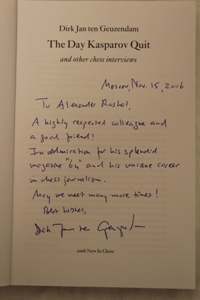 Dirk Jan ten Geuzendam
The Day Kasparov Quit
and other chess interviews
Moscow, Nov. 15, 2006
To Alexander Roshal,
A highly respected colleague and
a good friend!
In admiration for his splendid
magazine "64" and his unique career
in chess journalism.
May we meet many more times!
Best wishes,
Dirk Jan ten Geuzendam
2006 New In Chess